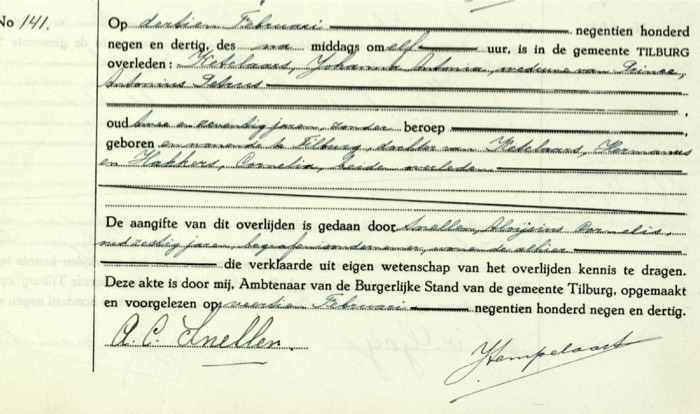 No 141.
Op dertien Februari negentien honderd
negen en dertig, des na middags om elf uur, is in de gemeente TILBURG
overleden: Ketelaars, Johanna Antonia, weduwe van Peinke,
Antonius Petrus
oud twee en zeventig jaren, zonder beroep
geboren en wonende te Tilburg, dochter van Ketelaars, Hermanus
en Hakkers, Cornelia, beiden overleden
De aangifte van dit overlijden is gedaan door Snellen, Aloijsius Cornelis,
oud zestig jaren, begrafenisondernemer, wonende alhier
die verklaarde uit eigen wetenschap van het overlijden kennis te dragen.
Deze akte is door mij, Ambtenaar van de Burgerlijke Stand van de gemeente Tilburg, opgemaakt
en voorgelezen op veertien Februari negentien honderd negen en dertig.
A. C. Snellen.